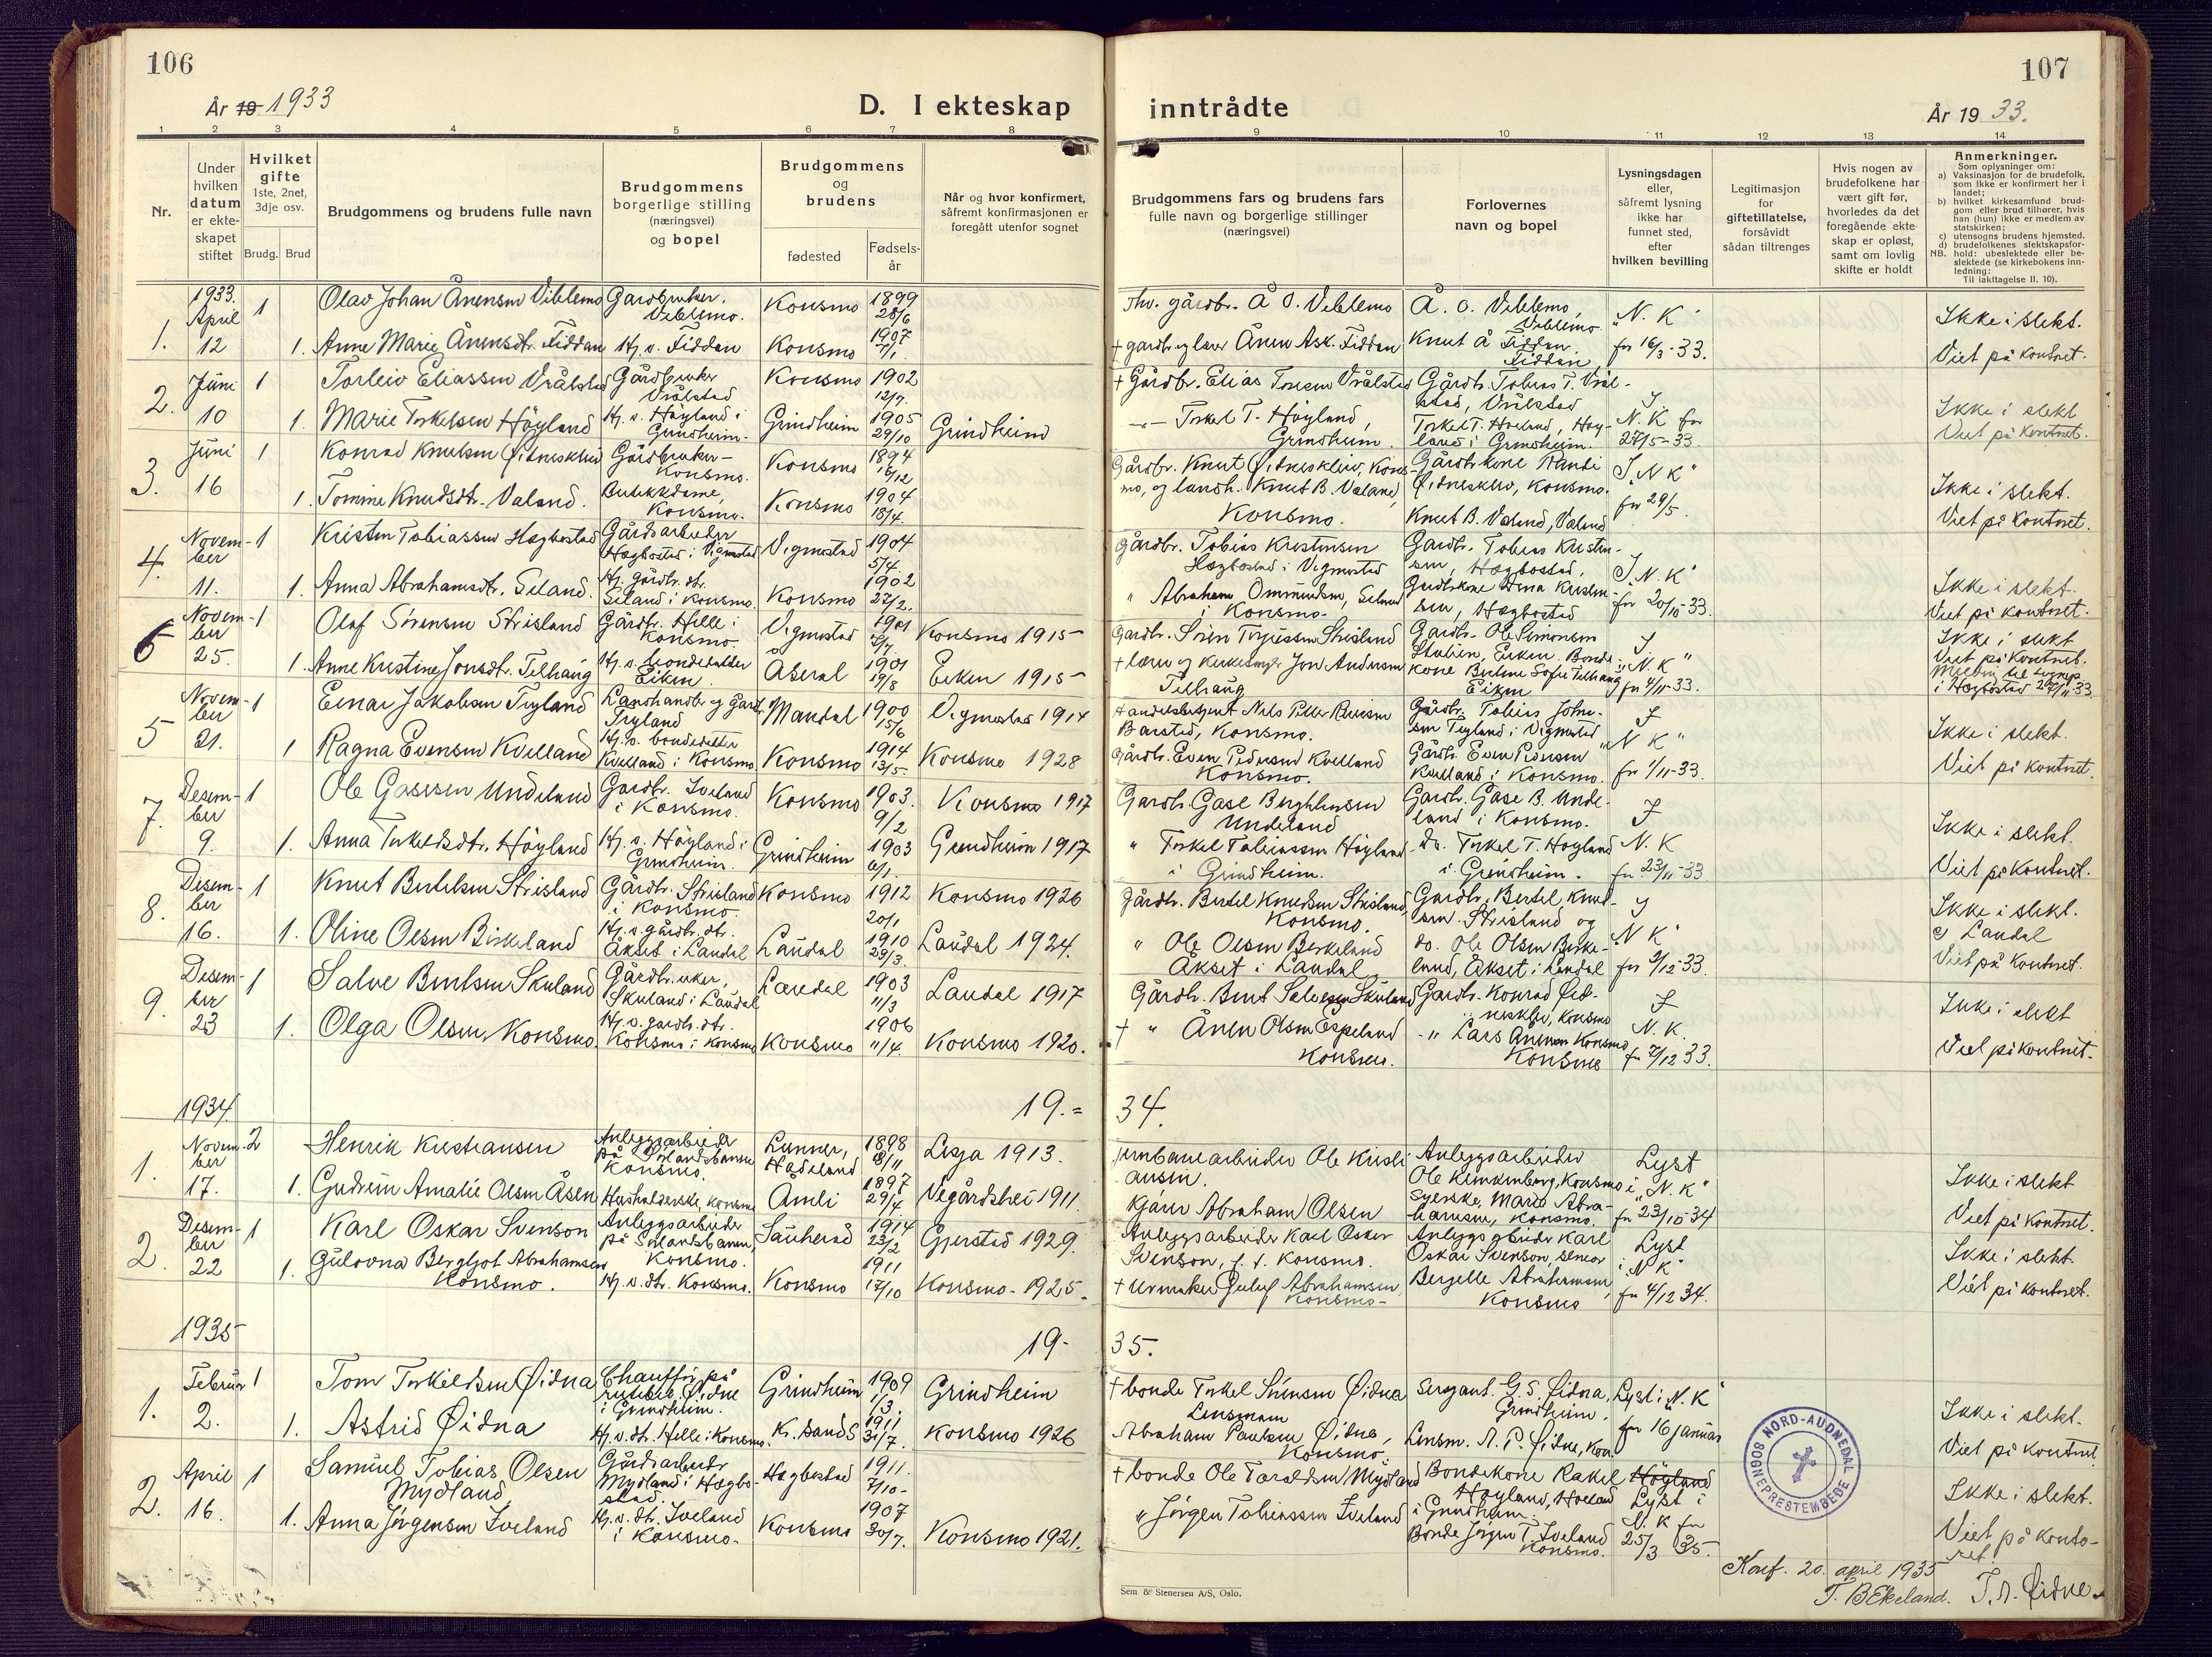 106
År 19 1933
D. I ekteskap
1 2 3 4 5 6 7 8
Nr.
Under hvilken datum er ekteskapet stiftet
Hvilket gifte
1ste, 2net, 3dje osv.
Brudg. Brud
Brudgommens og brudens fulle navn
Brudgommens borgerlige stilling (næringsvei) og bopel
Brudgommens og brudens
fødested
Fødselsår
Når og hvor konfirmert, såfremt konfirmasjonen er foregått utenfor sognet
1933. April 12
1. 1 Olav Johan Ånensen Viblemo Gårdbruker. Viblemo. Konsmo 1899 28/6
1. Anne Marie Ånensdt. Fiddan Hj. v. Fiddan Konsmo 1907 7/1.
2. Juni 10
1 Torleiv Eliassen Vrålstad Gårdbruker Vrålstad Konsmo 1902 12/7.
1. Marie Torkelsen Höyland Hj. v. Höyland i Grindheim. Grindheim 1905 29/10 Grindheim
3. Juni 16
1 Konrad Knutsen Øidneskleiv Gårdbruker Konsmo. Konsmo 1894 16/12
1. Tomine Knudsdt. Valand. Butikkdame, Konsmo. Konsmo 1904 18/4.
4. November 11.
1 Kristen Tobiassen Hægbostad Gårdsarbeider Hægbostad i Vigmostad Vigmostad 1904 5/4.
1. Anna Abrahamsdt. Seland. Hj. gårdbr. dt. Seland i Konsmo. Konsmo 1902 27/2.
6 November 25.
1 Olaf Sörensen Strisland Gårdbr. Helle i Konsmo. Vigmostad 1901 Konsmo 1915
1. Anne Kristine Jonsdt. Telhaug Hj. v. bondedatter Eiken Åseral 1901 19/8 Eiken 1915
5 November 21.
1 Einar Jakobsen Tryland Landhandler og Gårdbr. Tryland Mandal 1900 15/6 Vigmostad 1914
1 Ragna Evensen Kvelland Hj. v. bondedatter Kvelland i Konsmo Konsmo 1914 13/5. Konsmo 1928
7. Desember 9.
1 Ole Gasesen Undeland Gårdbr. Iveland i Konsmo. Konsmo 1903. 9/2 Konsmo 1917
1. Anna Torkelsdt. Höyland Hj. v. Höyland i Grindheim. Grindheim 1903 6/1. Grindheim 1917
8. Desember 16.
1 Knut Bertelsen Strisland Gårdbr. Strisland i Konsmo. Konsmo 1912 20/1 Konsmo 1926
1. Oline Olsen Birkeland Hj. v. gårdbr. dtr. Åkset i Laudal Laudal 1910 29/3. Laudal 1924.
9. Desember 23
1 Salve Berntsen Skuland Gårdbruker, Skuland i Laudal Laudal 1903 11/3 Laudal 1917
1. Olga Olsen, Konsmo. Hj. v. gårdb. dtr. Konsmo i Konsmo Konsmo 1906 11/4. Konsmo 1920.
1934. 19.=
1. November 17.
2 Henrik Kristiansen Anleggsarbeider på Sörlandsbanen Konsmo. Lunner, Hadeland 1898 8/11 Lesja 1913.
1. Gudrun Amalie Olsen Åsen Husholderske, Konsmo Åmli 1897 29/4 Vegårdshei 1911.
2. Desember 22
1 Karl Oskar Svenson Anleggsarbeider på Sörlandsbanen, Konsmo. Sauherad 1914 23/2 Gjerstad 1929.
1. Gulovna Bergljot Abrahamsen Konsmo. Hj. v. dt. Konsmo. Konsmo 1911 17/10 Konsmo - 1925.
1935 19-
1. Februar 2.
1 Tom Torkeldsen Øidna Chauffør på rutebil Øidne i Grindheim. Grindheim 1909 1/3. Grindheim
1. Astrid Øidna Hj. v. dt. Helle i Konsmo. Kr. sand S 1911 31/7. Konsmo 1926
2. April 16.
1 Samuel Tobias Olsen Mydland Gårdsarbeider Mydland i Hægbostad. Hægbostad 1911. 7/10-
1. Anna Jörgensen Iveland Hj. v. dt. Iveland i Konsmo. Konsmo 1907 30/7. Konsmo 1921.
107
inntrådte
År 19 33.
9 10 11 12 13 14
Brudgommens fars og brudens fars fulle navn og borgerlige stillinger (næringsvei)
Forlovernes navn og bopel
Lysningsdagen eller, såfremt lysning ikke har funnet sted, efter hvilken bevilling
Legitimasjon for giftetillatelse, forsåvidt sådan tiltrenges
Hvis nogen av brudefolkene har vært gift før, hvorledes da det foregående ekteskap er opløst, samt om lovlig skifte er holdt
Anmerkninger.
Som oplysninger om:
a) Vaksinasjon for de brudefolk, som ikke er konfirmert her i landet;
b) hvilket kirkesamfund brudgom eller brud tilhører, hvis han (hun) ikke er medlem av statskirken;
c) utensogns brudens hjemsted.
d) brudefolkenes slektskapsforhold: ubeslektede eller beslektede (se kirkebokens innledning:
NB.
Til iakttagelse II. 10).
Thv. gårdbr. Å O. Viblemo Å. O. Viblemo, Viblemo "N. K" Ikke i slekt.
+ gårdbr og lærer Ånen Ask. Fiddan Knut Å Fiddan Fiddan fr 16/3-33. Viet på kontoret.
+ Gårdbr. Elias Torsen Vrålstad Gårdb. Tobias T. Vrålstad, Vrålstad I Ikke i slekt
Torkel T. Höyland, Grindheim. Torkel T. Höiland, Höyland i Grindheim. N. K fr 27/5-33. Viet på kontoret.
Gårdbr. Knut Øidneskleiv, Konsmo, og landh. Knut B. Valand, Konsmo. Gårdbr.kone Randi Øidneskleiv, Konsmo. I "N K" Ikke i slekt.
Knut B. Valand, Valand fr 29/5. Viet på kontoret.
Gårdbr. Tobias Kristensen Hægbostad i Vigmostad Gårdbr. Tobias Kristensen, Hægbostad, I "N. K" Ikke i slekt.
" Abraham Ommundsen, Seland i Konsmo. Gårdbr.kone Anna Kristensen, Hægbostad fr 20/10-33. Viet på kontoret.
Gårdbr. Sören Terjessen Strisland Gårdbr. Ole Simonsen I Ikke i slekt
+ lærer og kirkesanger Jon Andersen Telhaug Eiken. Bondekone Bertine Sofie Telhaug Eiken "N. K" fr 4/11-33. Viet på kontoret.
i Hægbostad 27/11 33
Handelsbetjent Nils Peter Barstad, Konsmo. Gårdbr. Tobias Johnsen Tryland i Vigmostad I Ikke i slekt.
Gårdbr. Even Pedersen Kvelland Konsmo. Gårdbr. Even Pedersen Kvelland i Konsmo. "N K" fr 1/11-33. Viet på kontoret.
Gårdbr. Gase Undeland Gårdbr. Gase B. Undeland i Konsmo. I Ikke i slekt.
" Torkel Tobiassen Höyland i Grindheim. Do. Torkel T. Höyland i Grindheim. N. K fr. 23/11-33 Viet på kontoret.
Gårdbr. Bertel Knudsen Strisland, Konsmo. Gårdbr. Bertel Knudsen. Strisland og I Ikke i slekt.
c) Laudal
" Ole Olsen Birkeland Åkset i Laudal do. Ole Olsen Birkeland, Åkset i Laudal "N K" fr 2/12-33. Viet på kontoret.
Gårdbr. Bernt Salvesen Skuland Gårdbr. Konrad Øidneskleiv, Konsmo I Ikke i slekt
+ " Ånen Olsen Espeland Konsmo. " Lars Ånensen Konsmo Konsmo N. K. fr 7/12 33. Viet på kontoret.
34.
Jernbanearbeider Ole Kristiansen. Anleggsarbeider Ole Klenkenberg, Konsmo Lyst i "N. K" Ikke i slekt
Gårdbr Abraham Olsen Syerske, Marie Abrahamsen, Konsmo. fr 23/10-34 Viet på kontoret.
Anleggsarbeider Karl Oskar Svenson, f. t. Konsmo. Anleggsarbeider Karl Oskar Svenson, senior Lyst i N K" Ikke i slekt.
+ Urmaker Guluf Abrahamsen Konsmo- Bergelle Abrahamsen, Konsmo fr 4/12 34. Viet på kontoret.
35.
+ bonde Torkel Sörensen Øidna Sersjant. G. S. Øidna, Grindheim. Lyst i "N. K" Ikke i slekt.
Lensmann Abraham Paulsen Øidna, Konsmo. Lensm. A. P. Øidne, Kon. fr 16 januar Viet på kontoret.
+ bonde Ole Taraldsen Mydland Bondekone Rakel Höyland, Höiland i Grindheim. Höyland Lyst i N. K fr Ikke i slekt.
" Jörgen Tobiassen Iveland Bonde Jörgen T. Iveland Konsmo. 25/3 35. Viet på kontoret.
NORD-AUDNEDAL SOGNEPRESTEMBEDE
Konf. 20. april 1935
T. B Ekeland. T. A. Øidne
Sem & Stenersen A/S, Oslo.